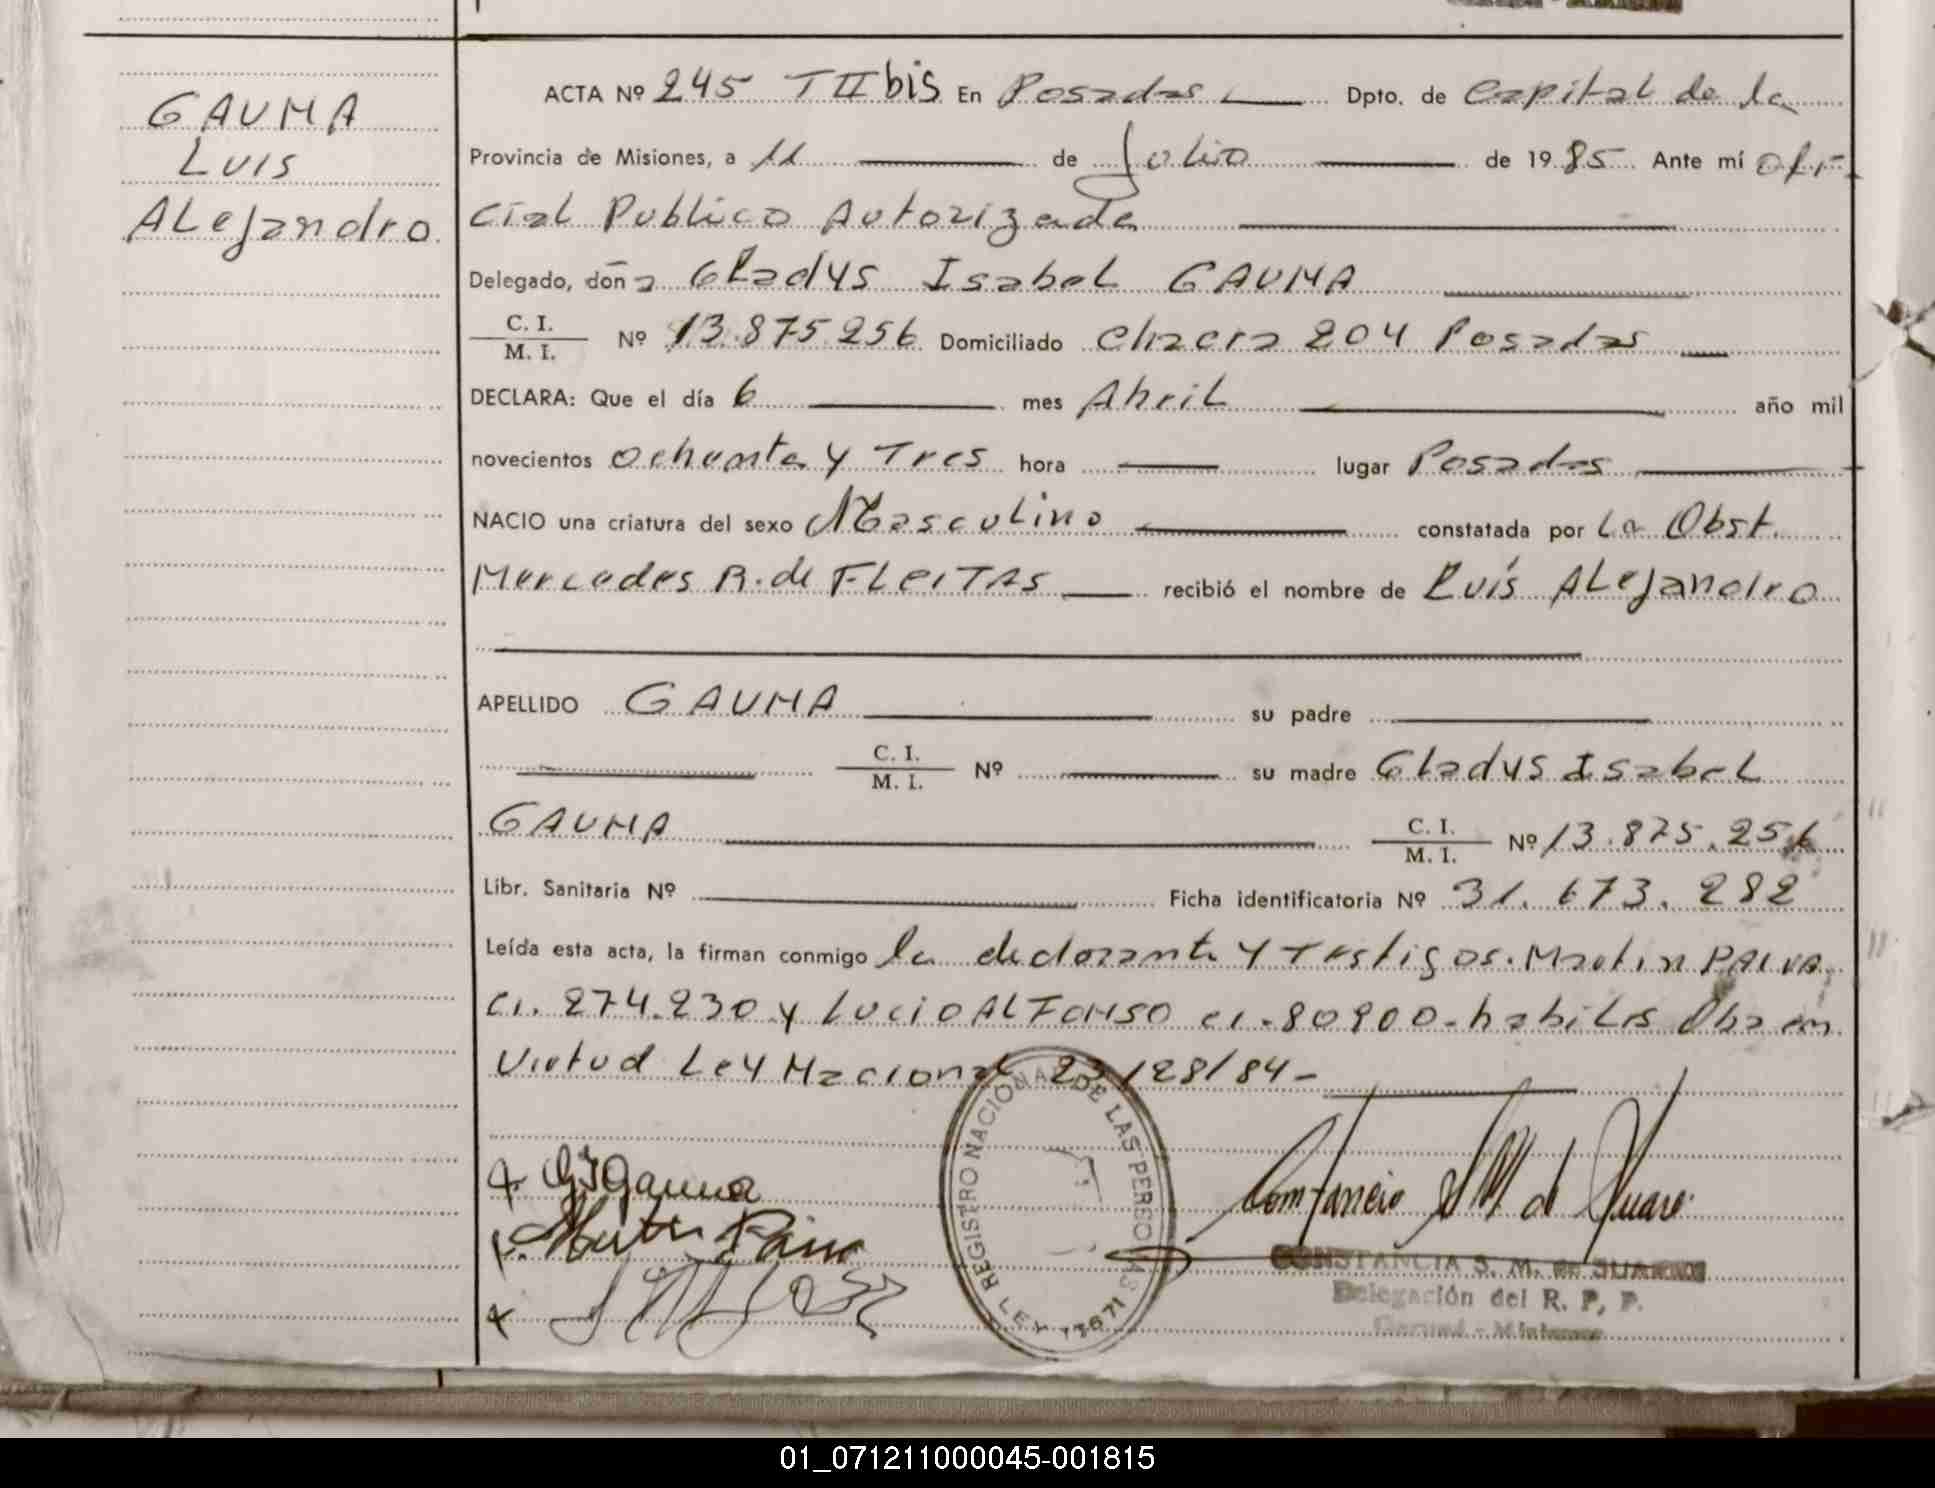 GAUNA
LUIS
ALejandro
ACTA Nº 245 TII bis En Posadas Dpto. de Capital de la
Provincia de Misiones, a 11 de Julio de 1985 Ante mí Ofi-
cial Publico Autorizada
Delegado, doña Gladys Isabel GAUNA
C. I.
M. I. Nº 13.875.256 Domiciliado Chacra 204 Posadas
DECLARA: Que el día 6 mes Abril año mil
novecientos Ochenta y Tres hora lugar Posadas
NACIO una criatura del sexo Masculino constatada por La Obst.
Mercedes R. de FLEITAS recibió el nombre de Luis ALejandro
APELLIDO GAUNA su padre
C. I.
M. I. Nº su madre Gladys Isabel
GAUNA C. I.
M. I. Nº 13.875.256
Libr. Sanitaria Nº Ficha identificatoria Nº 31.673.282
Leída esta acta, la firman conmigo la declarante y Testigos. Martin PAIVA
CI. 274.230 y Lucio ALFONSO CI. 80900- habiles Oba en
Virtud Ley Nacional 23128/84-
GIGauna
REGISTRO NACIONAL DE LAS PERSONAS
LEY 17671
CONSTANCIA S. M. DE JUAREZ
Delegación del R. P. P.